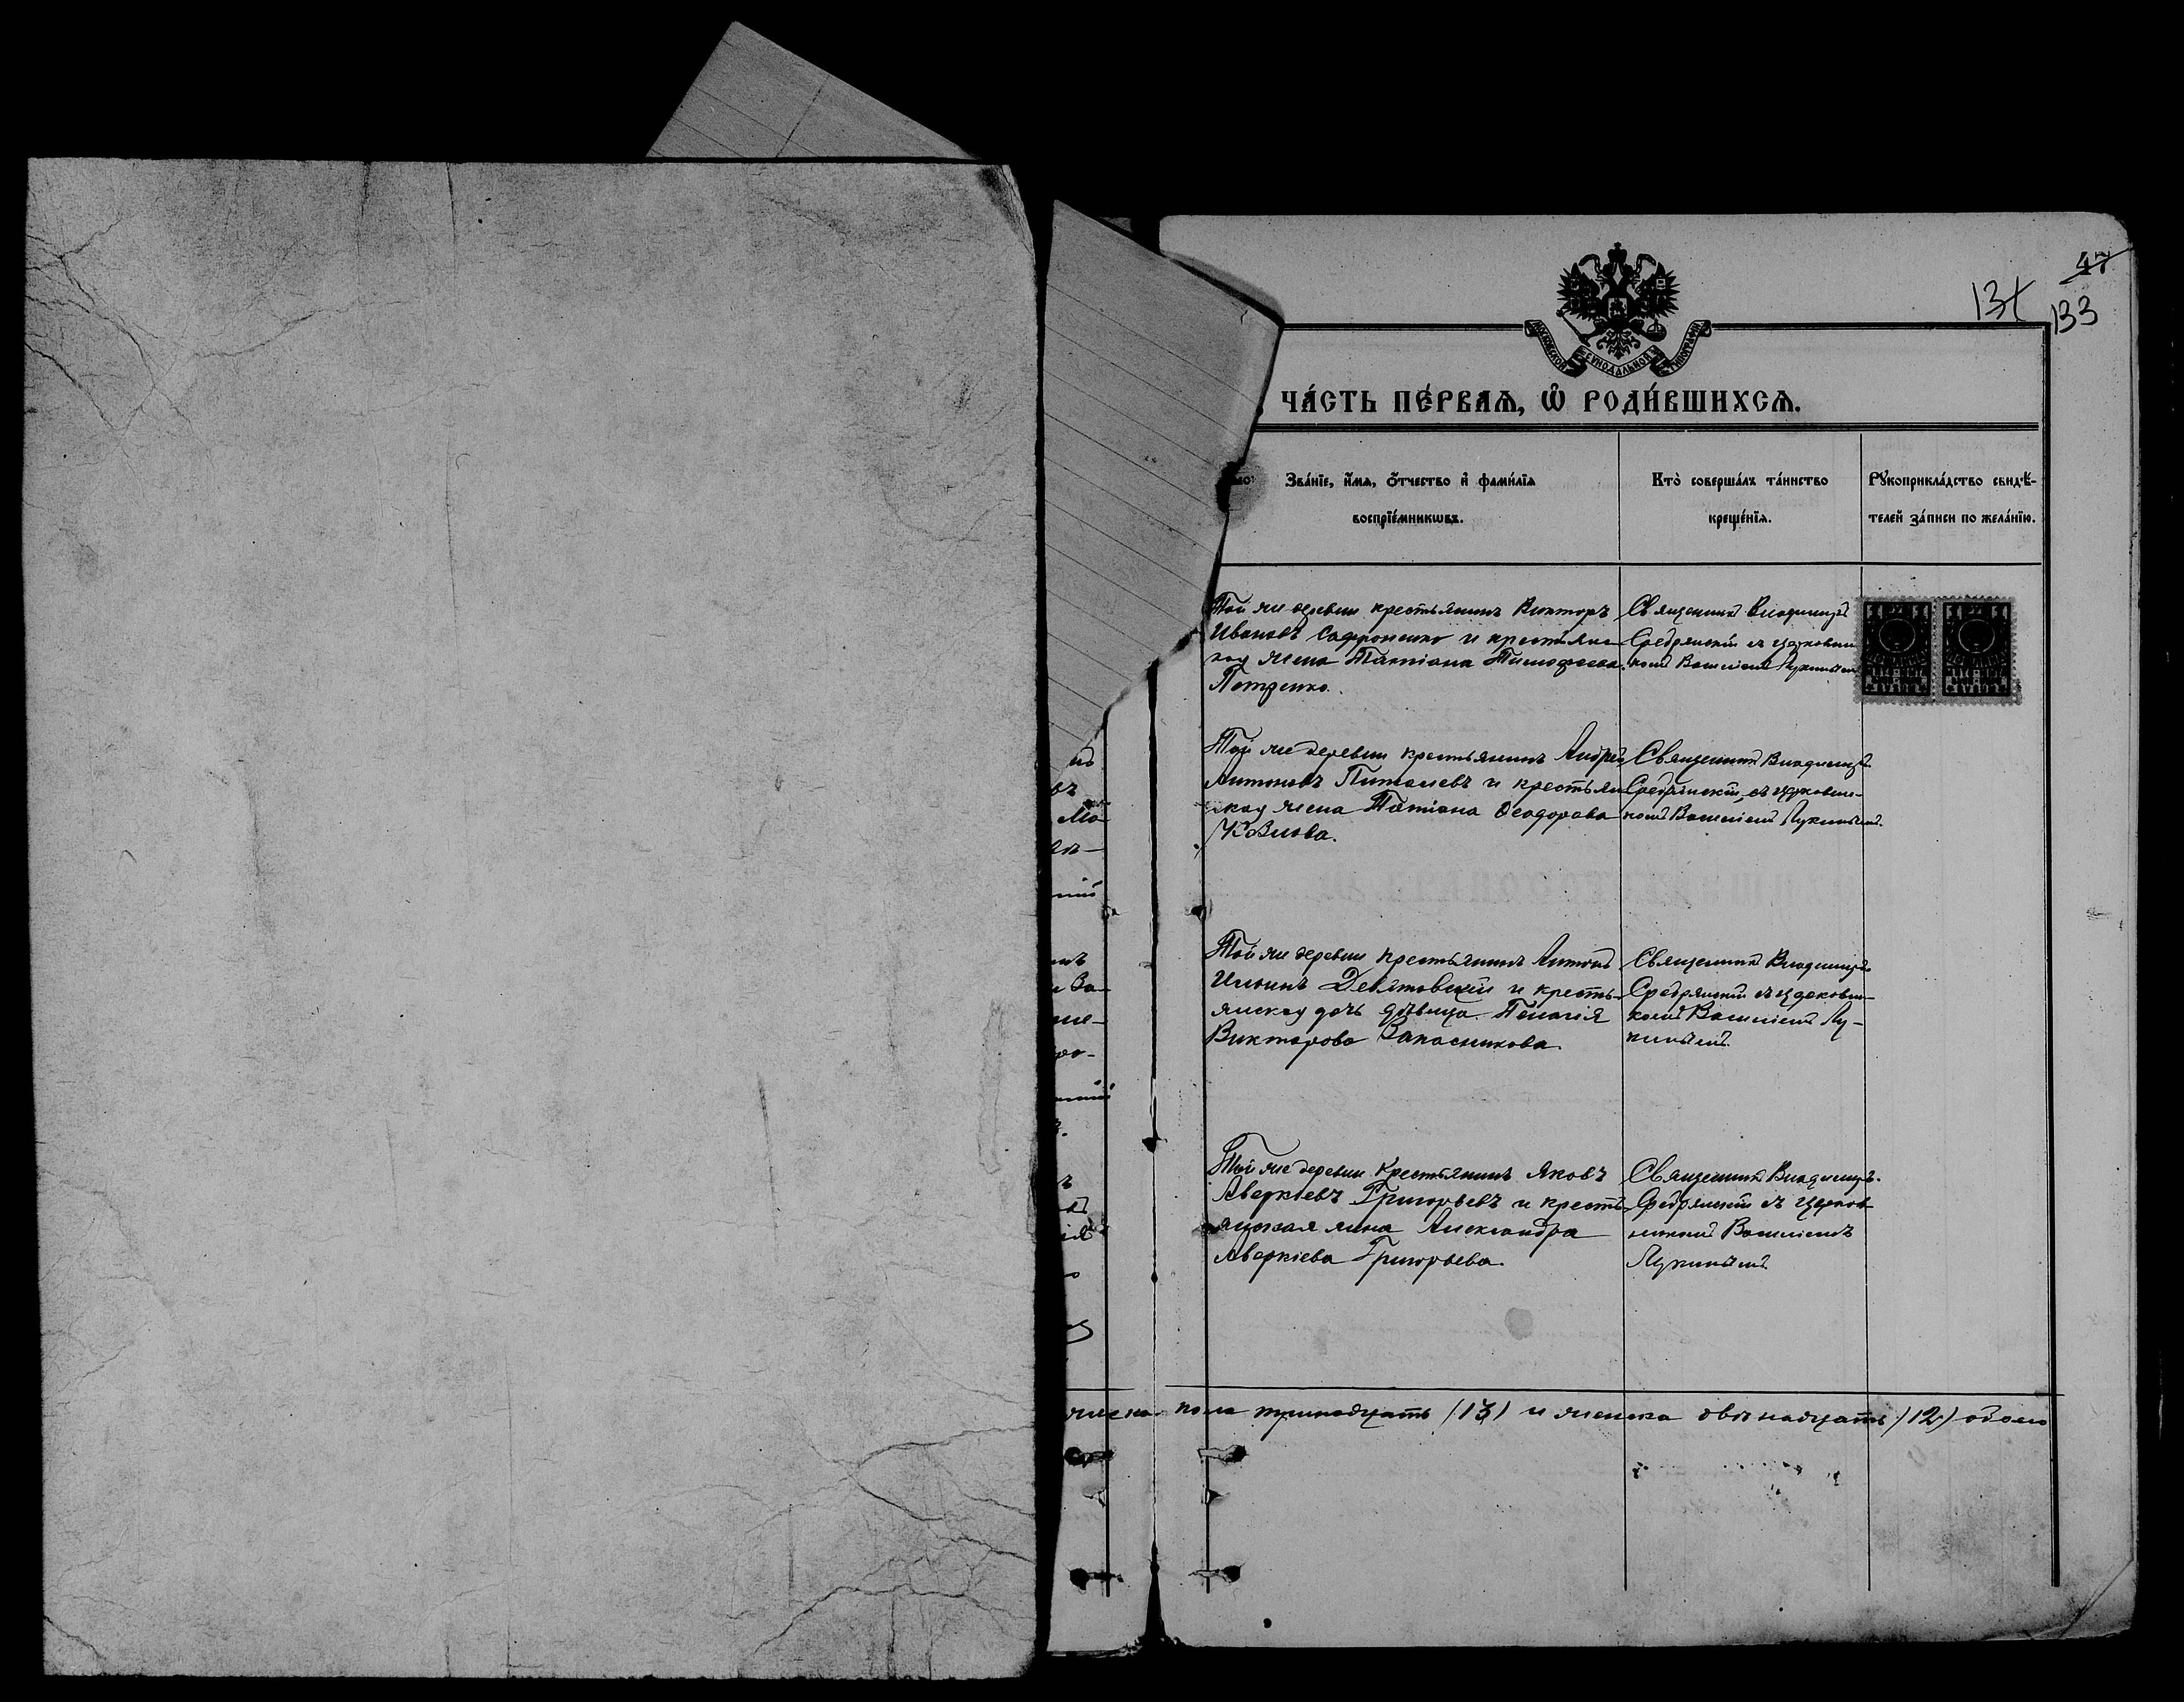 47
13
133
МОСКОВСКОЙ СѴНОДАЛЬНОЙ ТИПОГРАФІИ
ЧА́СТЬ ПЕ́РВАѦ, Ѽ РОДИ́ВШИХСѦ.
Зва́нїе, и҆́мѧ, ѻ҆́тчество и҆ фами́лїѧ
воспрїе́мникѡвъ.
Кто̀ соверша́лъ та́инство
креще́нїѧ.
Рꙋкоприкла́дство свидѣ́-
телей за́писи по жела́нїю.
Той же деревни крестьянинъ Викторъ
Ивановъ Сафроненко и крестьянс
кая жена Татіана Тимофеева
Петренко.
Священникъ Владиміръ
Средрянскій съ церковни
комъ Василіемъ Лукинымъ
Той же деревни крестьянинъ Андрей
Антоновъ и крестьян
ская жена Татіана Ѳеодорова
Козлова.
Священникъ Владиміръ
Средрянскій, съ церковни-
комъ Василіемъ Лукинымъ.
Той же деревни крестьянинъ Антонъ
Ильинъ Девятовскій и кресть-
янская дочь дѣвица Пелагія
Викторова Запасникова.
Священникъ Владиміръ
Средрянскій съ церковни-
комъ Василіемъ Лу-
кинымъ.
Той же деревни Крестьянинъ Яковъ
Аверкіевъ Григорьевъ и кресть
янская жена Александра
Аверкіева Григорьева.
Священникъ Владиміръ
Средрянскій съ церков
никомъ Василіемъ
Лукинымъ.
пола тринадцать (13) и женска двѣнадцать (12) обоего